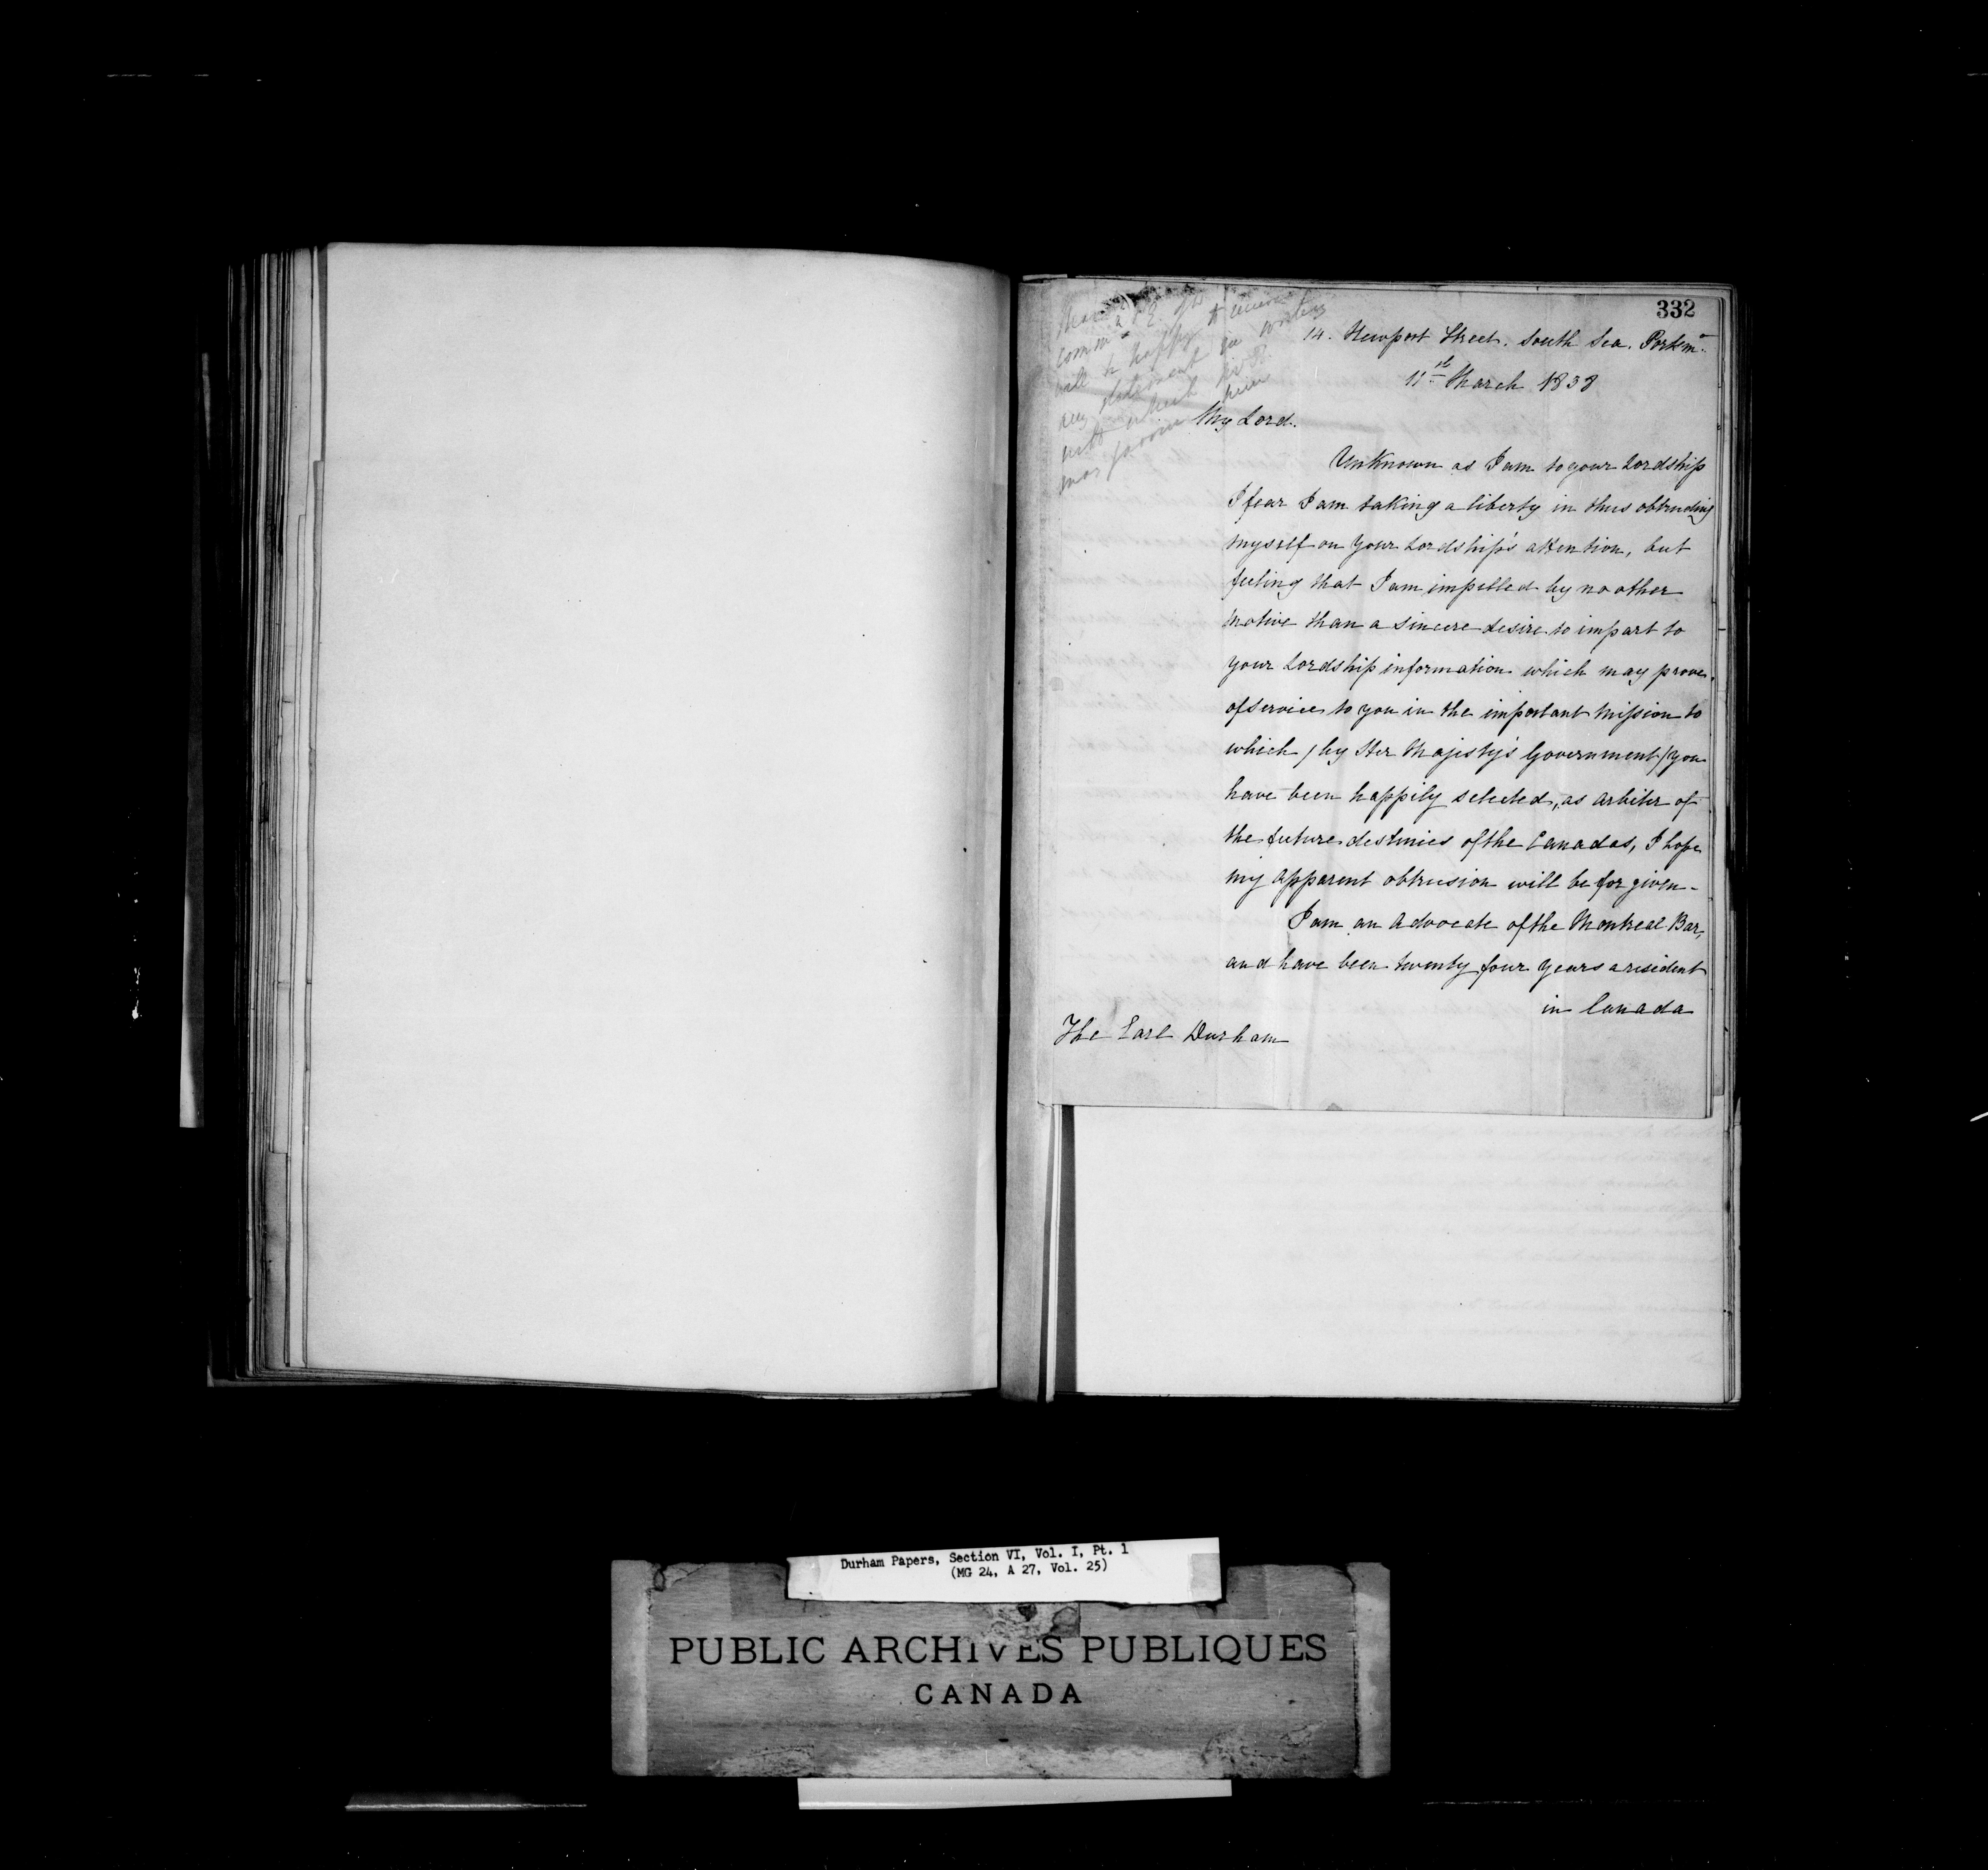 332
14. Newport Street. South Sea. Portsmo.
11th March 1838
will be happy to receive
any statement in writing
with which
may favour him
My Lord.
Unknown as I am to your Lordship
I fear I am taking a liberty in thus obtruding
myself on your Lordship's attention, but
feeling that I am impelled by no other
motive than a sincere desire to impart to
your Lordship information which may prove
of service to you in the important mission to
which / by Her Majesty's Government / you
have been happily selected, as arbiter of
the future destinies of the Canadas, I hope
my apparent obtrusion will be forgiven -
I am an Advocate of the Montreal Bar,
and have been twenty four years a resident
in Canada
The Earl Durham
Durham Papers, Section VI, Vol. I, Pt. 1
(MG 24, A 27, Vol. 25)
PUBLIC ARCHIVES PUBLIQUES
CANADA